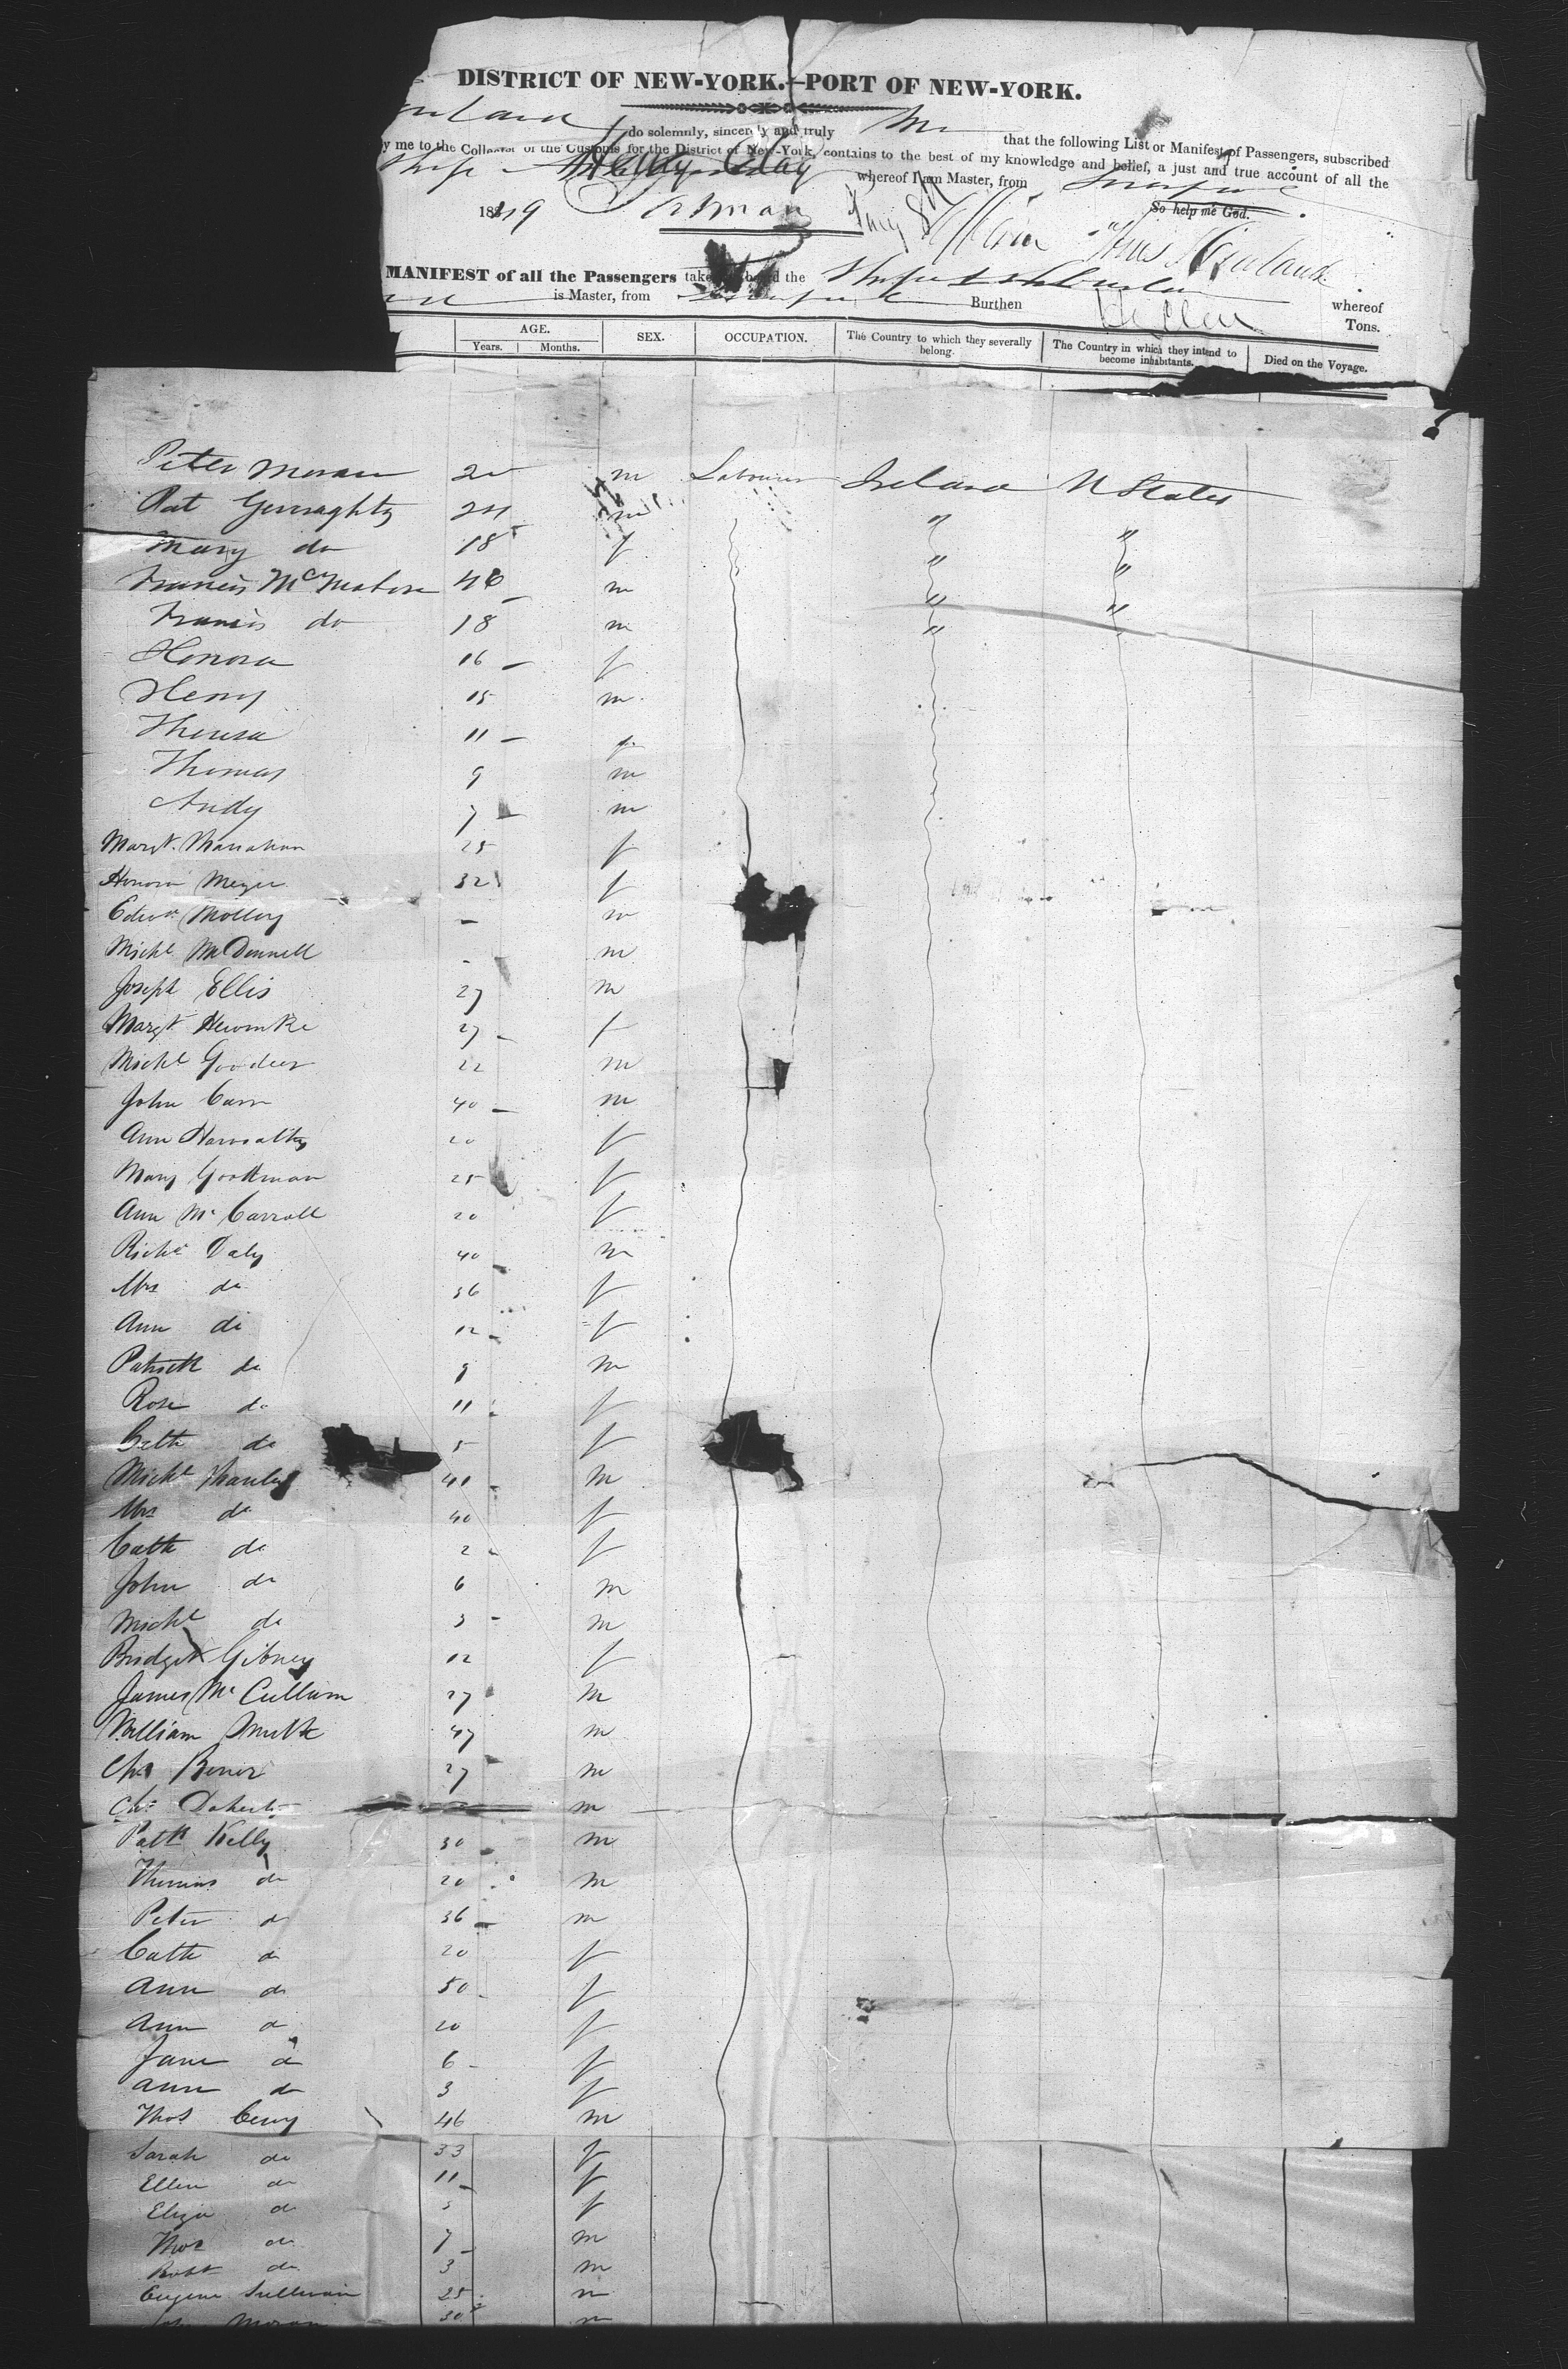 DISTRICT OF NEW-YORK.—PORT OF NEW-YORK.
do solemnly, sincerely and truly that the following List or Manifest of Passengers, subscribed
by me to the Collector of the Customs for the District of New-York, contains to the best of my knowledge and belief, a just and true account of all the
Henry Clay whereof I am Master, from
1849 So help me God.
MANIFEST of all the Passengers taken on board the whereof
is Master, from Burthen Tons.
AGE. SEX. OCCUPATION. The Country to which they severally belong. The Country in which they intend to become inhabitants. Died on the Voyage.
Years. Months.
Peter Moran m Labourer Ireland U States
Pat Gerraghty 24 m " "
Mary do 18 f " "
Francis 46 m " "
Francis do 18 m "
Honora 16 f
Henry 15 m
Theresa 11 f
Thomas 9 m
Andy 7 m
Margt. 25 f
Honora 32 f
Molloy - m
Michl McDonnell - m
Joseph Ellis 27 m
Margt 27 f
Michl 22 m
John Carr 40 m
Ann 20 f
Mary 25 f
Ann Mc Carroll 20 f
Richd Daly 40 m
Mrs do 36 f
Ann do 12 f
Patrick do 9 m
Rose do 11 f
Cath do 5 f
Michl 41 m
Mrs do 40 f
Cath do 2 f
John do 6 m
Michl do 3 m
Bridget Gibney 12 f
James Mc Cullum 27 m
William Smith 47 m
Chs 27 m
Chs Dohert m
Patk Kelly 30 m
Thomas do 20 m
Peter do 36 m
Cath do 20 f
Ann do 50 f
Ann do 20 f
Jane do 6 f
Ann do 3 f
Thos 46 m
Sarah do 33 f
Ellen do 11 f
Eliza do 5 f
Thos do 7 m
Robt do 3 m
Eugene Sullivan 25 m
John Moran 30 m